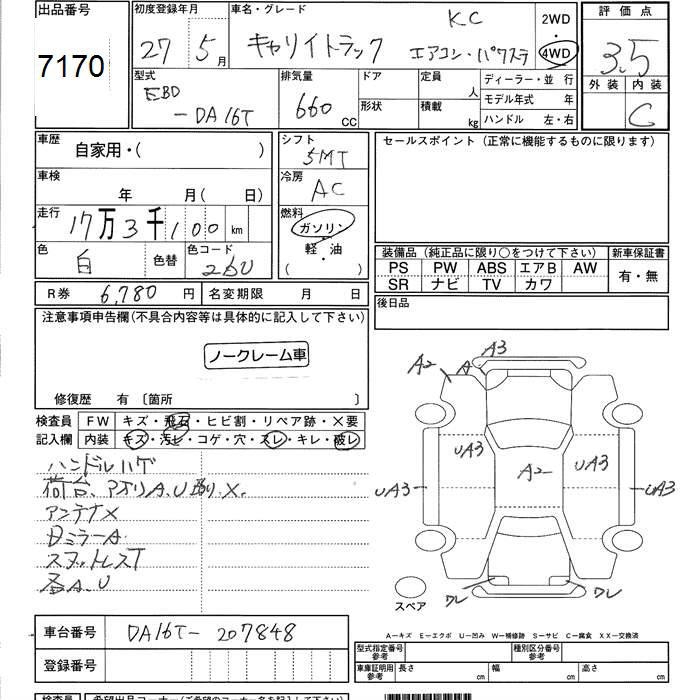 出品番号
7170
初度登録年月
27年 5月
車名・グレード
キャリイトラック
KC
エアコン・パワステ
2WD
・
4WD
評価点
3.5
外装 内装
C
型式
EBD
-DA16T
排気量
660 cc
ドア
形状
定員
人
積載
kg
ディーラー・並 行
モデル年式 年
ハンドル 左・右
車歴
自家用・( )
車検
年 月( 日)
走行
17万3千100 km
色
白
色替
色コード
26U
シフト
5MT
冷房
AC
燃料
ガソリン
軽・油
( )
R券 6,780円
名変期限 月 日
セールスポイント(正常に機能するものに限ります)
装備品(純正品に限り○をつけて下さい)
新車保証書
PS PW ABS エアB AW
SR ナビ TV カワ
有・無
後日品
注意事項申告欄(不具合内容等は具体的に記入して下さい)
ノークレーム車
修復歴 有〔箇所 〕
検査員
記入欄
FW キズ・飛石・ヒビ割・リペア跡・×要
内装 キズ・汚レ・コゲ・穴・スレ・キレ・破レ
ハンドルハゲ
荷台、アオリA.U X.
アンテナX
ミラーA
スタットレスT
各A.U
A2
A
A3
UA3
A2
UA3
UA3
UA3
ワレ
ワレ
スペア
A－キズ E－エクボ U－凹み W－補修跡 S－サビ C－腐食 XX－交換済
車台番号 DA16T-207848
登録番号
型式指定番号
参考
種別区分番号
参考
車庫証明用
参考
長さ cm
幅 cm
高さ cm